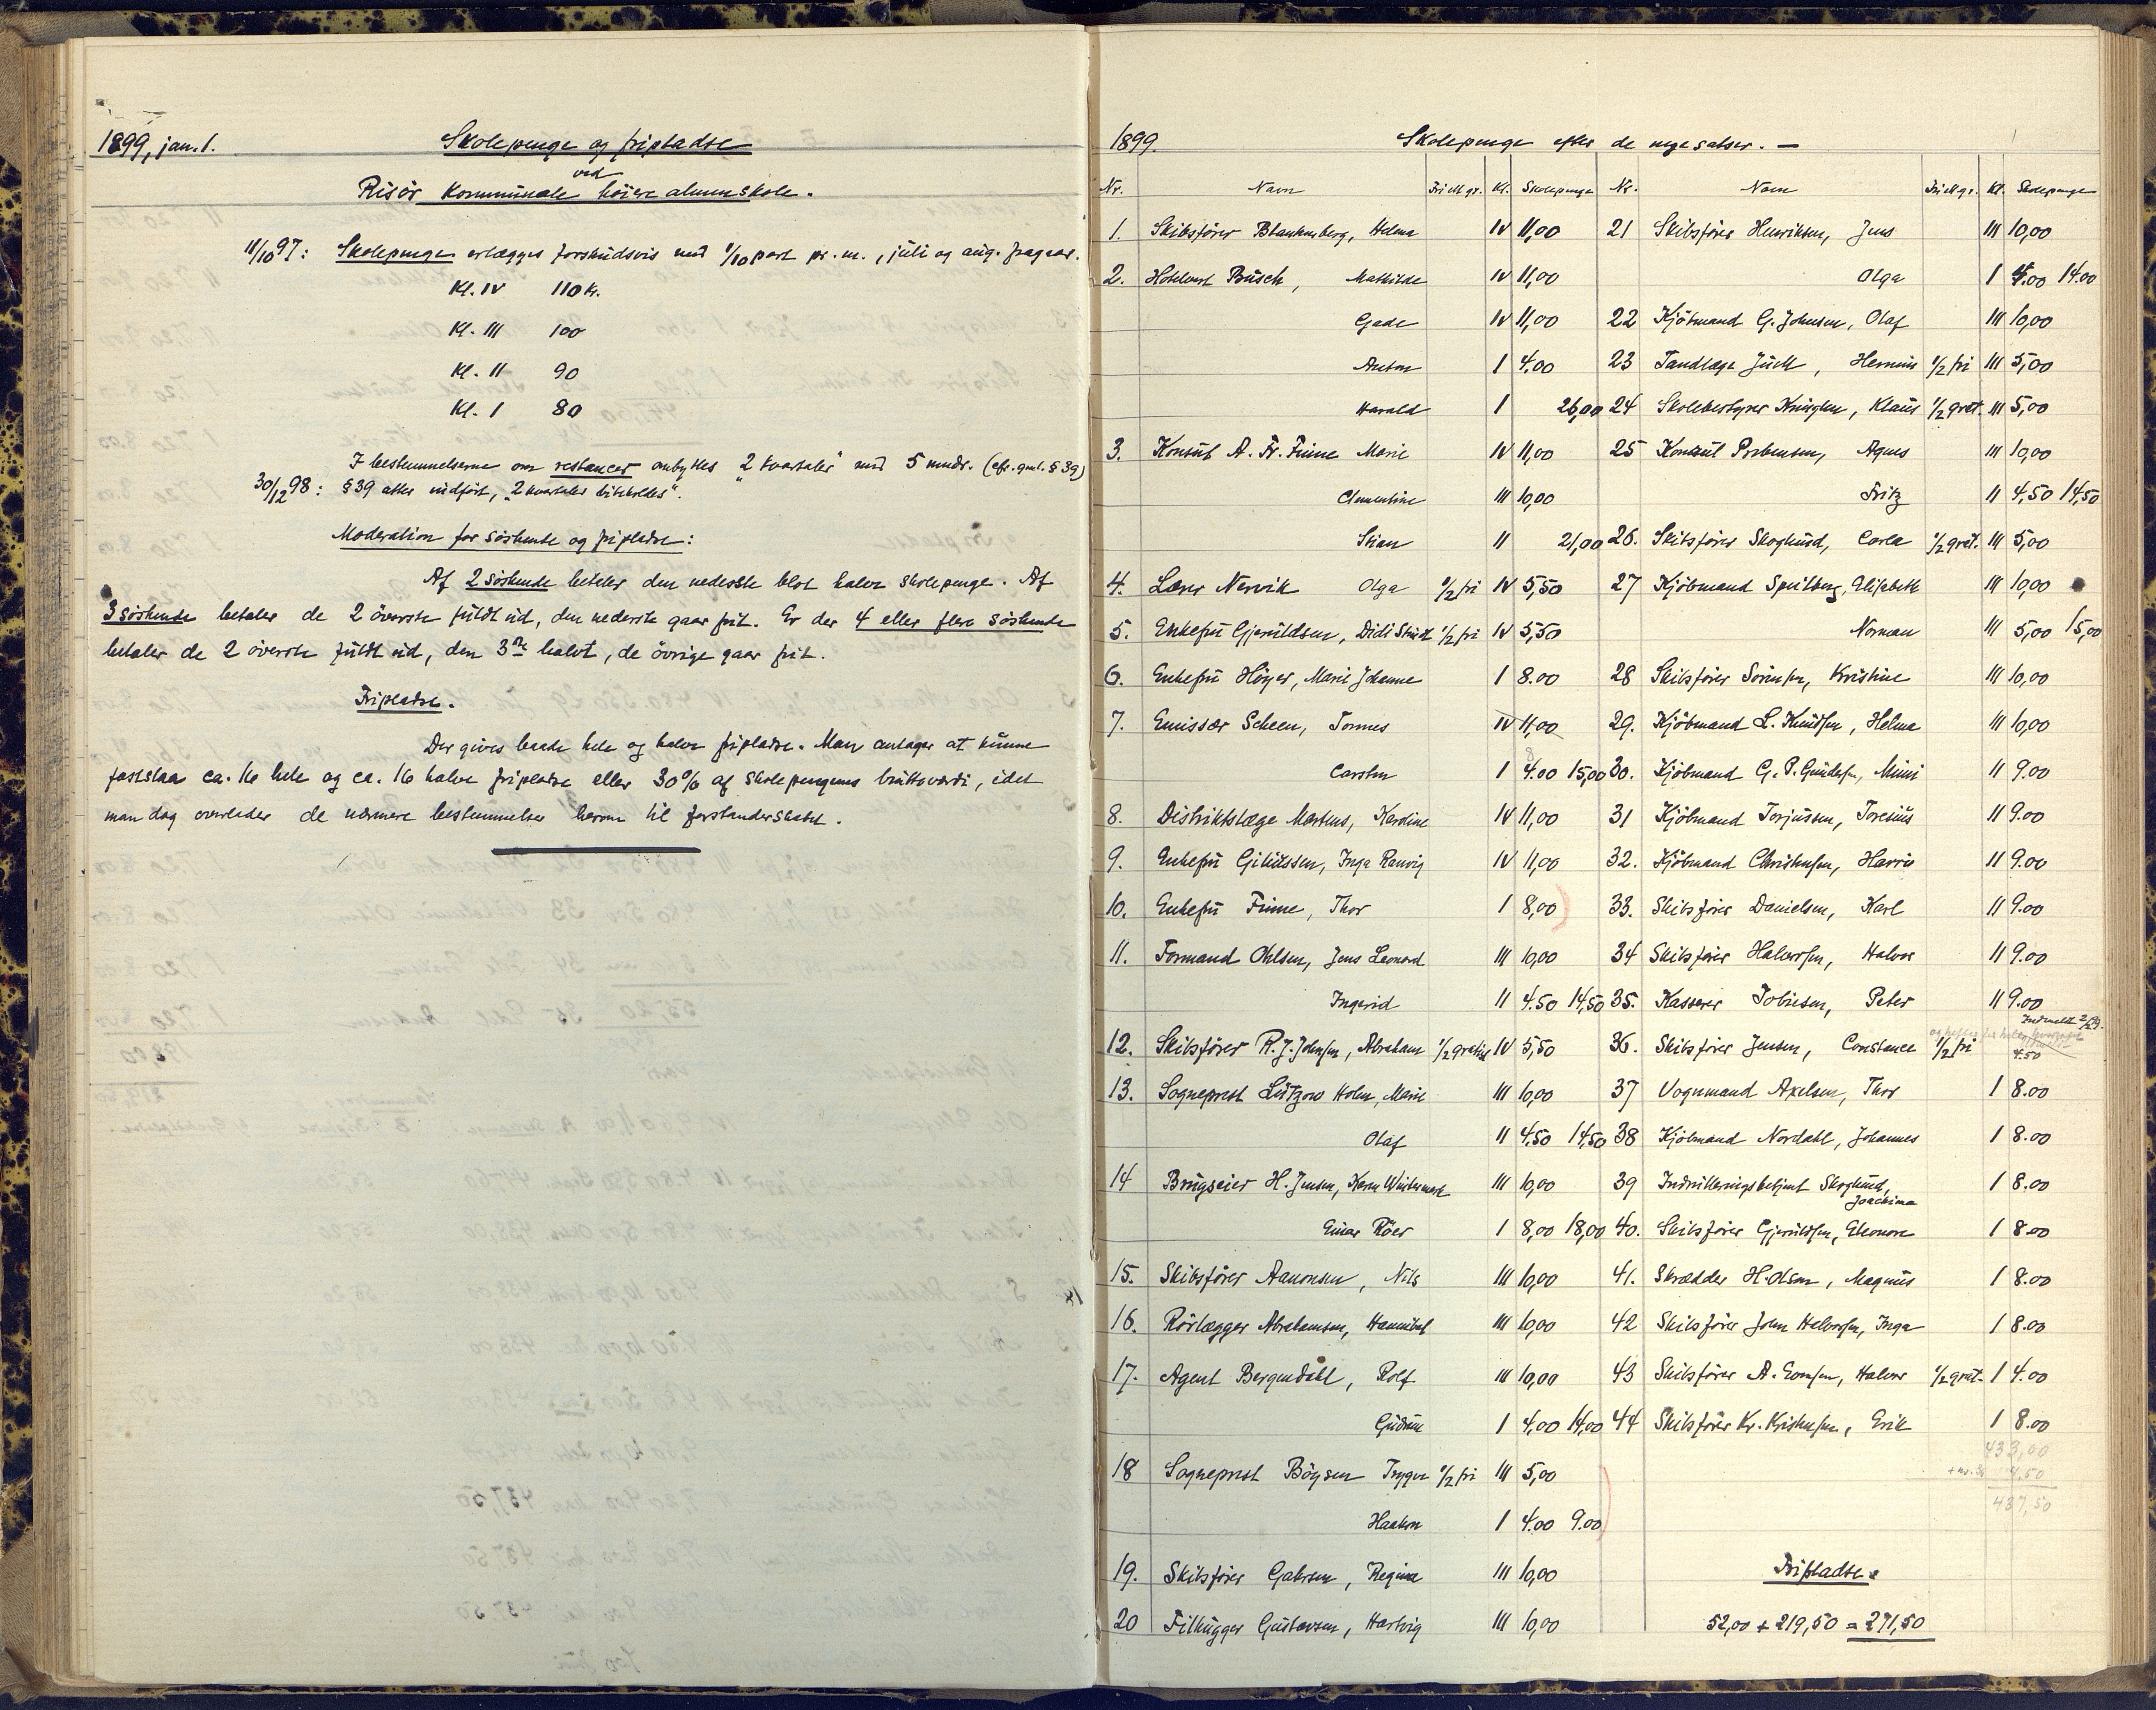 1899, jan. 1.
Skolepenge og fripladse
ved
Risör kommunale höiere almenskole.
11/10 97: Skolepenge erlægges forskudsvis med 1/10 part pr. m., juli og aug. fragaar.
Kl. IV 110 kr.
Kl. III 100
Kl. II 90
Kl. I 80
I bestemmelserne om restancer ombyttes "2 kvartaler" med 5 mndr. (cfr. gml. § 39)
30/12 98: § 39 atter indfört, "2 kvartaler bibeholdes".
Moderation for söskende og fripladse:
Af 2 söskende betaler den nederste blot halve skolepenge. Af
3 söskende betaler de 2 överste fuldt ud, den nederste gaar frit. Er der 4 eller flere söskende
betaler de 2 överste fuldt ud, den 3die halvt, de övrige gaar frit.
Fripladse.
Der gives baade hele og halve fripladse. Man antager at kunne
fastslaa ca. 16 hele og ca. 16 halve fripladse eller 30% af skolepengenes bruttoværdi, idet
man dog overlader de nærmere bestemmelser herom til forstanderskabet.
1899. Skolepenge efter de nye satser. —
Nr. Navn Fri ell. gr. Kl. Skolepenge
1. Skibsförer Blankenberg, Helma IV 11,00
2. Hotelvert Busch, Mathilde IV 11,00
Gade IV 11,00
Anton I 4.00
Harald I 26,00
3. Konsul A. Fr. Finne Marie IV 11,00
Clementine III 10,00
Stian II 21,00
4. Lærer Nervik Olga 1/2 fri IV 5,50
5. Enkefru Gjeruldsen, Didi 1/2 fri IV 5,50
6. Enkefru Höyer, Marie Johanne I 8.00
7. Emissær Scheen, Tomes IV 11,00
Carsten I 4.00 15,00
8. Distriktslæge Martens, Karoline IV 11,00
9. Enkefru Inga Ranvig IV 11,00
10. Enkefru Finne, Thor I 8,00
11. Formand Ohlsen, Jens Leonard III 10,00
Ingerid II 4.50 14,50
12. Skibsförer R. J. Johnsen, Abraham 1/2 gratist IV 5,50
13. Sogneprest Lützow Holm, Marie III 10,00
Olaf II 4,50 14,50
14 Brugseier H. Jensen, Karen III 10,00
Einar Röer I 8,00 18,00
15. Skibsförer Aanonsen, Nils III 10,00
16. Rörlægger Abrahamsen, Hannibal III 10,00
17. Agent Bergendahl, Rolf III 10,00
Gudrun I 4,00 14,00
18 Sogneprest Böysen Trygve 1/2 fri III 5,00
Haakon I 4.00 9.00
19. Skibsförer Gabrsen, Regina III 10,00
20 Filhugger Gustavsen, Hartvig III 10,00
Nr. Navn Fri ell. gr. Kl. Skolepenge
21 Skibsförer Henriksen, Jens III 10,00
Olga I 4.00 14.00
22 Kjöbmand G. Johnsen, Olaf III 10,00
23 Tandlæge Juell, 1/2 fri III 5,00
24 Skolebestyrer Klaus 1/2 grat. III 5,00
25 Konsul Prebensen, Agnes III 10,00
Fritz II 4,50 14,50
26. Skibsförer Skoglund, Carla 1/2 grat. III 5,00
27 Kjöbmand Elisabeth III 10,00
Norman III 5,00 15,00
28 Skibsförer Sörensen, Kristine III 10,00
29. Kjöbmand L. Knudsen, Helma III 10,00
30. Kjöbmand G. P. Gundersen, Mimi II 9.00
31 Kjöbmand Torjussen, Toresius II 9.00
32. Kjöbmand Christensen, Harris II 9.00
33. Skibsförer Danielsen, Karl II 9.00
34 Skibsförer Halvorsen, Halvor II 9.00
35. Kasserer Tobiesen, Peter II 9.00
36. Skibsförer Jensen, Constance 1/2 fri 4.50
37 Vognmand Axelsen, Thor I 8.00
38 Kjöbmand Nordahl, Johannes I 8.00
39 Indrulleringsbetjent Skoglund, I 8.00
Joachima
40. Skibsförer Gjeruldsen, Eleonore I 8.00
41. Skrædder H. Olsen, Magnus I 8.00
42 Skibsförer John Halvorsen, Inga I 8.00
43 Skibsförer A. Halvor 1/2 grat. I 4.00
44 Skibsförer Kr. Kristensen, Erik I 8.00
433,00
4,50
437,50
Fripladse.
52,00 + 219,50 = 271,50